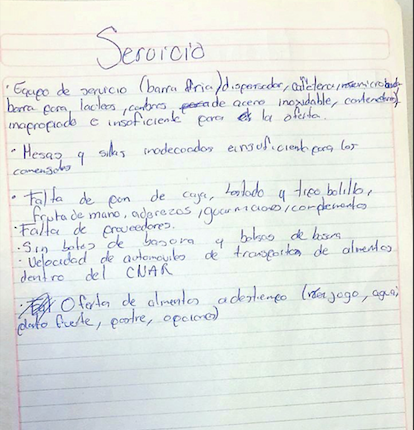 Servicio
· Equipo de servicio (barra fria) dispensador, cafetera, microondas
barra para lacteos, de acero inoxidable, contenedores)
inapropiado e insoficiente para la oferta.
· Mesas y sillas inadecuadas e insoficiente para los
comensales
· Falta de pan de caja, tostado y tipo bolillo,
fruta de mano, aderezos, guarniciones, complementos
· Falta de proveedores.
· Sin botes de basura y bolsas de basura
· Velocidad de automoviles de transportes de alimentos
dentro del CNAR
· Oferta de alimentos a destiempo ( jugo, agua,
plato fuerte, postre, opciones)